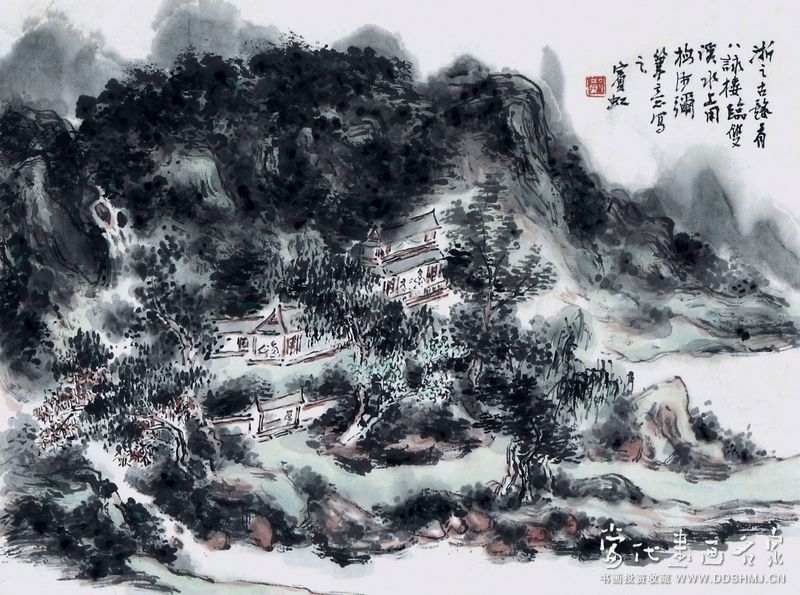 浙之古跡有
八詠樓臨雙
溪水上用
梅沙彌
筆意寫
之
賓虹
當代書画名家
书画投资收藏 WWW.DDSHMJ.CN